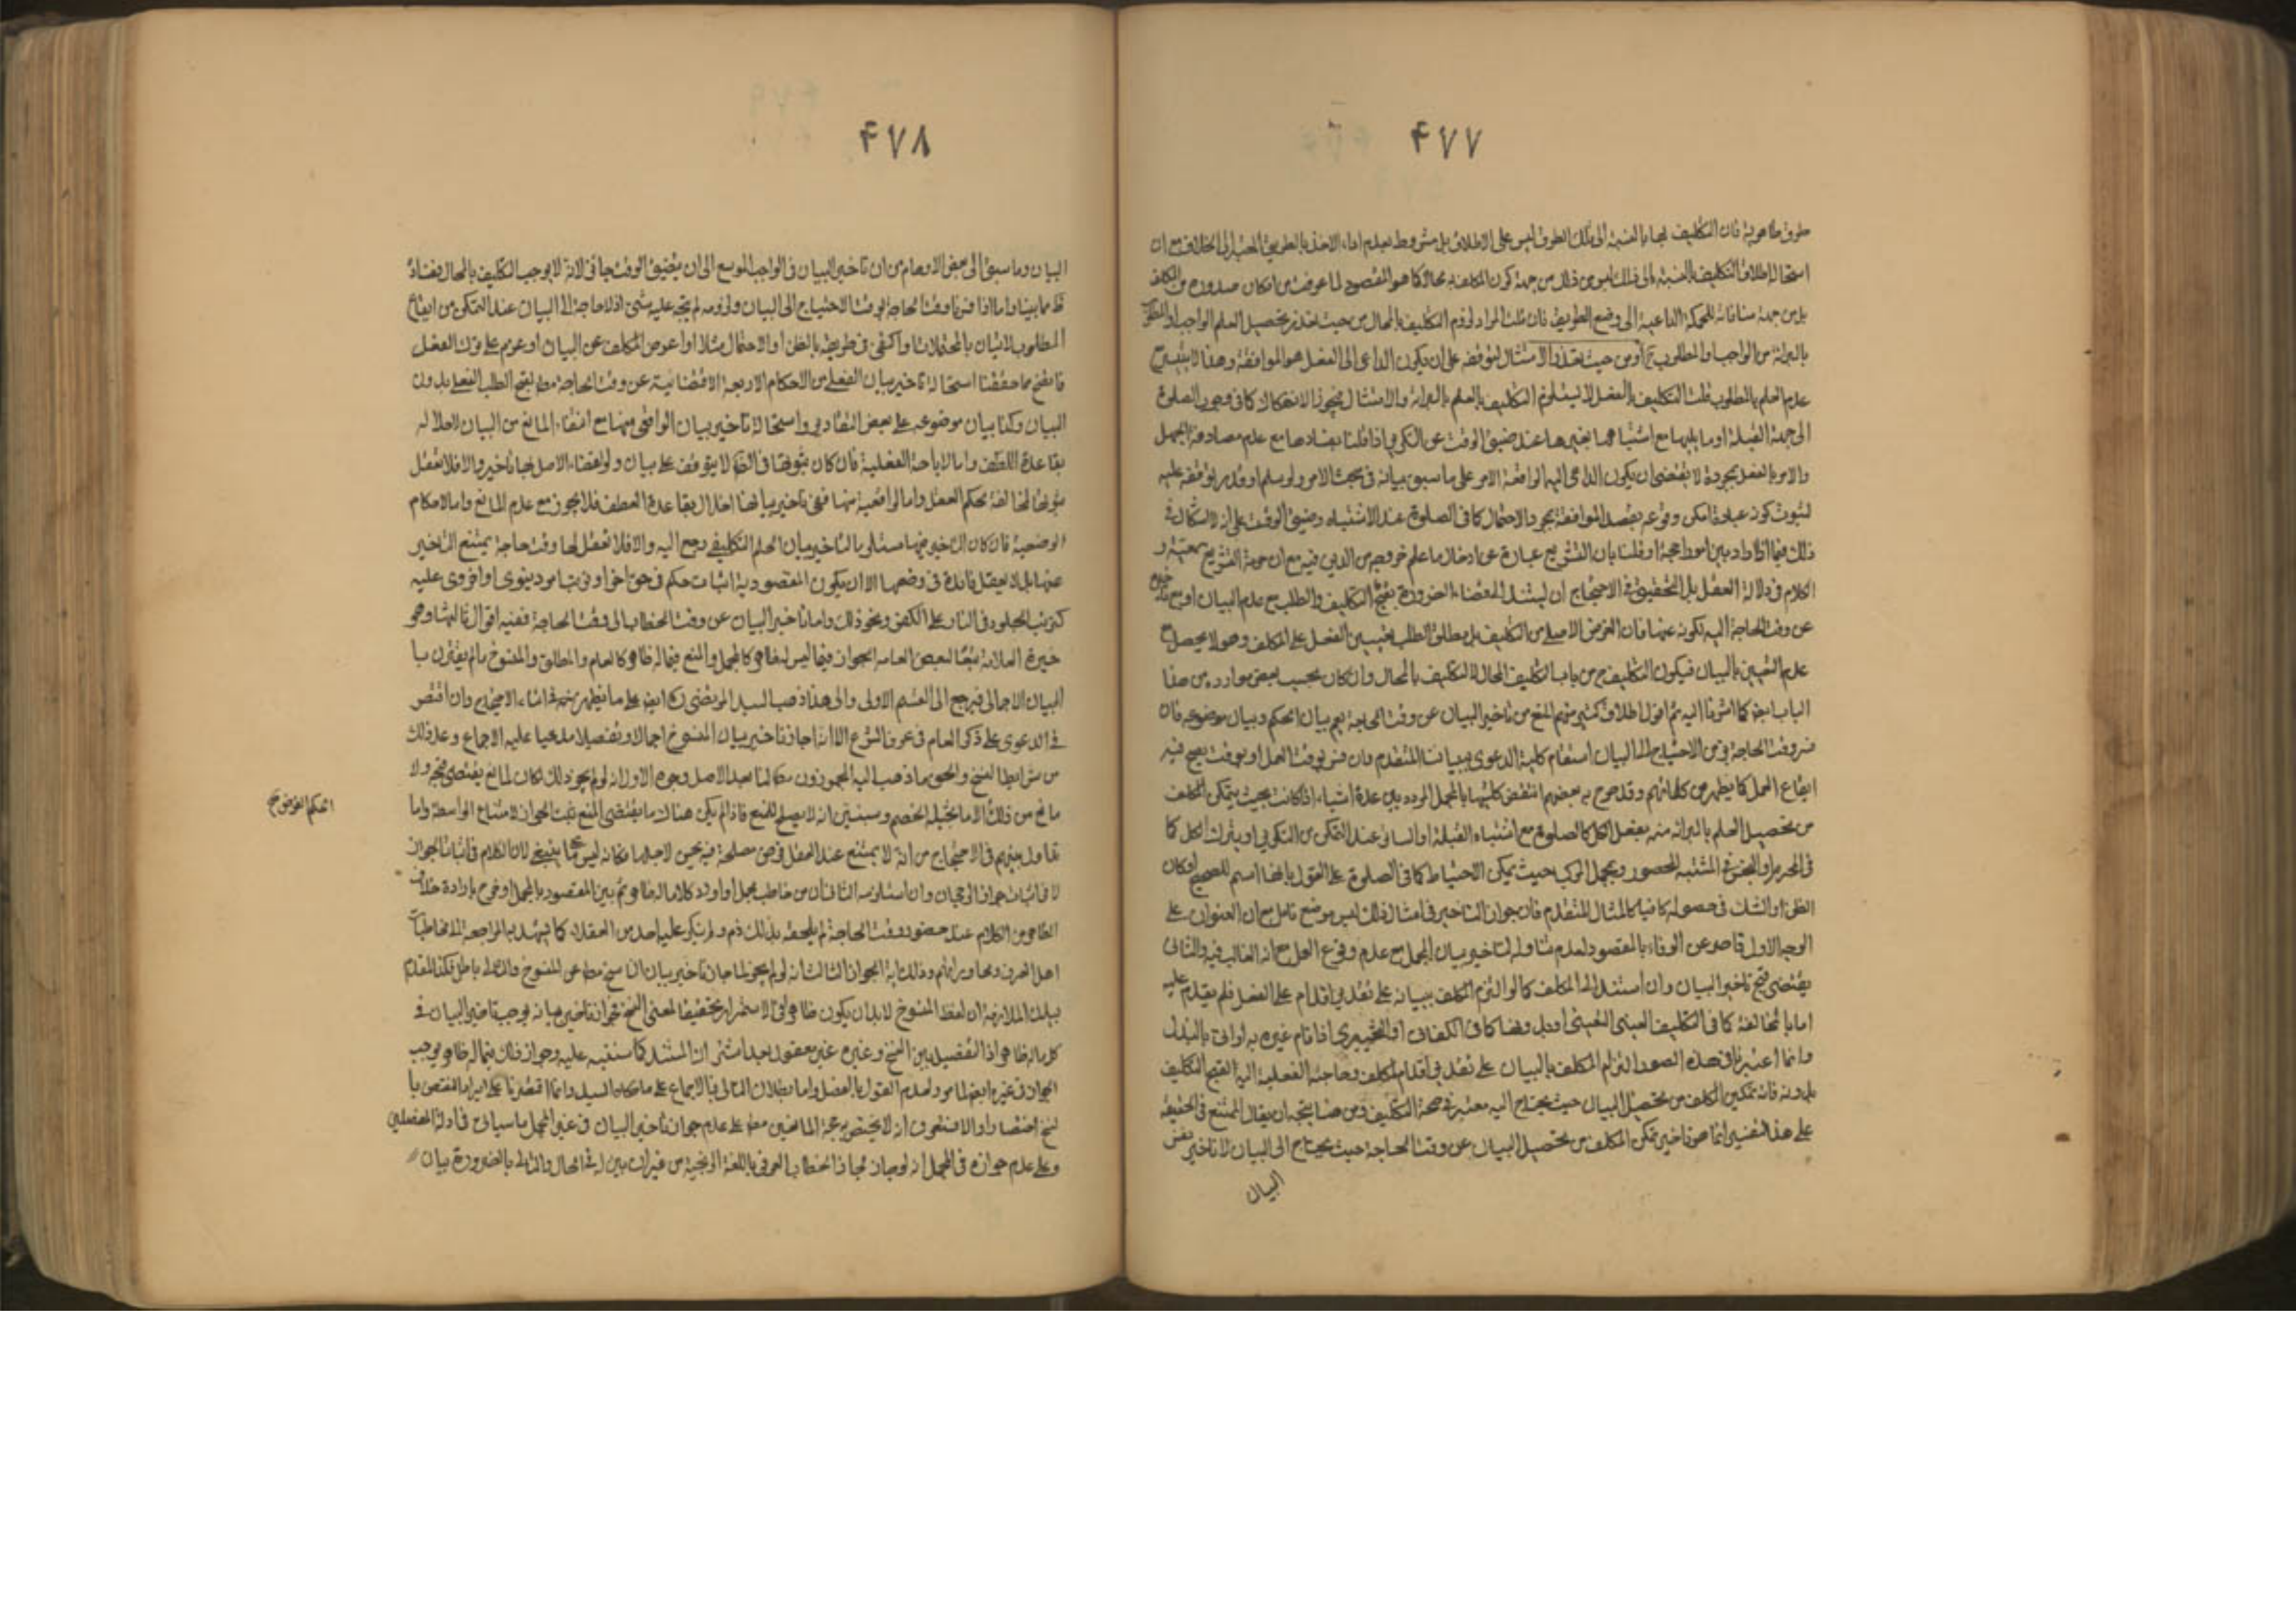 ۴۷۷
طرق ظاهرية فان التكليف بها بالنسبة الى تلك الطرق ليس على الاطلاق بل مشروط بعدم اداء الاخذ بالطريق المعتبر الى الخلاف مع ان
استحالة اطلاق التكليف بالنسبة الى ذلك ليس من جهة كون المكلف به محالا كما هو المقصود لما عرفت من امكان صدوره من المكلف
بل من جهة منافاته للحكمة الداعية الى وضع الطريق فان قلت المراد لزوم التكليف بالمحال من حيث تعذر تحصيل العلم الواجب او المطلوب
بالبرائة من الواجب والمطلوب ح او من حيث تعذر الامتثال لتوقفه على ان يكون الداعى الى الفعل هو الموافقة وهذا لا يتيسر مع
عدم العلم بالمطلوب قلت التكليف بالفعل لا يستلزم التكليف بالعلم بالبرائة والامتثال لجواز الانفكاك كما فى وجوب الصلوة
الى جهة القبلة او ما يليها مع اشتباهها بغيرها عند ضيق الوقت عن التكرير اذا قلنا بفسادها مع عدم مصادفة الجهل
والامر بالفعل بمجرده لا يقتضى ان يكون الداعى اليه موافقة الامر على ما سبق بيانه فى مبحث الامر ولو سلم او قدر توقفه عليه
لثبوت كونه عبادة امكن وقوعه بقصد الموافقة بمجرد الاحتمال كما فى الصلوة عند الاشتباه وضيق الوقت على انه لا اشكال فى
ذلك فيما اذا دار بين امور واجبة او قلنا بان التشريع عبارة عن ادخال ما علم خروجه من الدين فيه مع ان حرمة التشريع سمعية و
الكلام فى دلالة العقل بل التحقيق فى الاحتجاج ان يستند الى قضاء الضرورة بقبح التكليف والطلب مع عدم البيان او مع تاخره
عن وقت الحاجة اليه لكونه عبثا فان الغرض الاصلى من التكليف بل مطلق الطلب تعيين الفعل على المكلف وهو لا يحصل مع
عدم التعيين بالبيان فيكون التكليف ح من باب التكليف المحال لا التكليف بالمحال وان كان بحسب بعض موارده من هذا
الباب ايضا كما اشرنا اليه ثم اقول اطلاق كثير منهم المنع من تاخير البيان عن وقت الحاجة يعم بيان الحكم وبيان موضوعه فان
فسر وقت الحاجة بزمن الاحتياج الى البيان استقام كلية الدعوى ببياننا المتقدم وان فسر بوقت العمل او بوقت يصح فيه
ايقاع العمل كما يظهر من كلماتهم وقد صرح به بعضهم انتقض كليتها بالمجمل المردد بين عدة اشياء اذا كانت بحيث يتمكن المكلف
من تحصيل العلم بالبرائة منه بفعل الكل كالصلوة مع اشتباه القبلة او الساتر عند التمكن من التكرير او بترك الكل كما
فى المحرم او النجس المشتبه المحصور وبمجمل المركب حيث يمكن الاحتياط كما فى الصلوة على القول بانها اسم للصحيح او كان
الظن او الشك فى حصوله كافيا كالمثال المتقدم فان جواز التاخير فى امثال ذلك ليس موضع تامل مع ان العنوان على
الوجه الاول قاصر عن الوفاء بالمقصود لعدم تناوله لتاخير بيان المجمل مع عدم وقوع العمل مع انه الغالب فيه والثانى
يقتضى قبح تاخير البيان وان استند الى المكلف كما لو التزم المكلف ببيانه على تقدير اقدامه على الفعل فلم يقدم عليه
اما بالمخالفة كما فى التكليف العينى التعيينى او بدل ونها كما فى الكفائى او التخييرى اذا قام غيره به او اتى بالبدل
وانما اعتبرنا فى هذه الصور التزام المكلف بالبيان على تقدير اقدام المكلف وحاجته الفعلية اليه لقبح التكليف
بدونه فان تمكين المكلف من تحصيل البيان حيث يحتاج اليه معتبر فى صحة التكليف ومن هنا يتجه ان يقال الممتنع فى الحقيقة
على هذا التفسير انما هو تاخير تمكن المكلف من تحصيل البيان عن وقت الحاجة حيث يحتاج الى البيان لا تاخير نفس
البيان
۴۷۸
البيان وما سبق الى بعض الاوهام من ان تاخير البيان فى الواجب الموسع الى ان يتضيق الوقت جائز لانه لا يوجب التكليف بالمحال ففساده
ظ مما بينا واما اذا فسرنا وقت الحاجة بوقت الاحتياج الى البيان ولزومه لم يتجه عليه شئ اذ لا حاجة الى البيان عند التمكن من ايقاع
المطلوب لاتيان بالمحتملات او اكتفى فى طريقه بالظن او الاحتمال مثلا او اعرض المكلف عن البيان او عزم على ترك الفعل
فاتضح مما حققنا استحالة تاخير بيان الفعلى من الاحكام الاربعة الاقتضائية عن وقت الحاجة مط لقبح الطلب الفعلى بدون
البيان وكذا بيان موضوعه على بعض التقادير واستحالة تاخير بيان الواقعى منها مع انتفاء المانع من البيان لاخلاله
بقاعدة اللطف واما الاباحة الفعلية فان كان ثبوتها فى الظ لا يتوقف على بيان ولو اقتضاء الاصل لها تاخير والا فلا تعقل
ثبوتها لمخالفة بحكم العقل واما الواقعية منها ففى تاخير بيانها اخلال بقاعدة اللطف فلا يجوز مع عدم المانع واما الاحكام
الوضعية فان كان التاخير فيها مستلزما لتاخير بيان الحكم التكليفى رجع اليه والا فلا تعقل لها وقت حاجة يمتنع التاخير
عنها بل لا يعقل فائدة فى وضعها الا ان يكون المقصود به اثبات حكم فى حق اخر او ترتب امر دنيوى او اخروى عليه
كترتب الخلود فى النار على الكفر ونحو ذلك واما تاخير البيان عن وقت الخطاب الى وقت الحاجة ففيه اقوال ثالثها وهو
خيرة العلامة تبعا لبعض العامة الجواز فيما ليس له ظاهر كالمجمل والمنع فيما له ظاهر كالعام والمطلق والمنسوخ ما لم يقترن بها
البيان الاجمالى فيرجع الى القسم الاولى والى هذا ذهب السيد المرتضى ره ايضا على ما يظهر منه فى اثناء الاحتجاج وان اقتصر
فى الدعوى على ذكر العام فى عرف الشرع الا انه اجاز تاخير بيان المنسوخ اجمالا وتفصيلا مدعيا عليه الاجماع وعد ذلك
من شرايط النسخ والحق ما ذهب اليه المجوزون مط لنا بعد الاصل وجوه الاول انه لو لم يجز ذلك لكان لمانع يقتضى قبحه ولا
مانع من ذلك الا ما تخيله الخصم وسنبين انه لا يصلح للمنع فاذا لم يكن هناك ما يقتضى المنع ثبت الجواز لامتناع الواسطة واما
تداول بينهم فى الاحتجاج من انه لا يمتنع عند العقل فرض مصلحة فيه يحسن لاجلها فكانه ليس كما ينبغى لان الكلام فى اثبات الجواز
لا فى اثبات جواز الرجحان وان استلزمه الثانى ان من خاطب بمجمل او اورد كلاما له ظاهر ثم بين المقصود بالمجمل او صرح بارادة خلاف
الظاهر من الكلام عند حضور وقت الحاجة لم يلحقه بذلك ذم ولم ينكر عليه احد من العقلاء كما يشهد به المراجعة الى مخاطبات
اهل العرف ومحاوراتهم وذلك اية الجواز الثالث انه لو لم يجز لما جاز تاخير بيان الناسخ مط عن المنسوخ والتالى باطل فكذا المقدم
بيان الملازمة ان لفظ المنسوخ لا بد ان يكون ظاهرا فى الاستمرار تحقيقا لمعنى النسخ فجواز تاخير بيانه يوجب تاخير البيان فى
كل ما له ظاهر اذ التفصيل بين النسخ وغيره غير معقول بعد اشتراك المستند كما سننبه عليه وجواز ذلك فيما له ظاهر يوجب
الجواز فى غيره ايضا لما مر ولعدم القول بالفصل واما بطلان التالى فبالاجماع على ما حكاه السيد وانما اقتصرنا على ايراد النقض بالنسخ
اختصارا والا فستعرف انه لا يختص به حجة المانعين مط على عدم جواز تاخير البيان فى غير المجمل ما سياتى فى ادلة المفصلين
وعلى عدم جوازه فى المجمل انه لو جاز لجاز الخطاب العربى باللغة الزنجية من غير ان يبين له فى الحال والتالى بالضرورة بيان